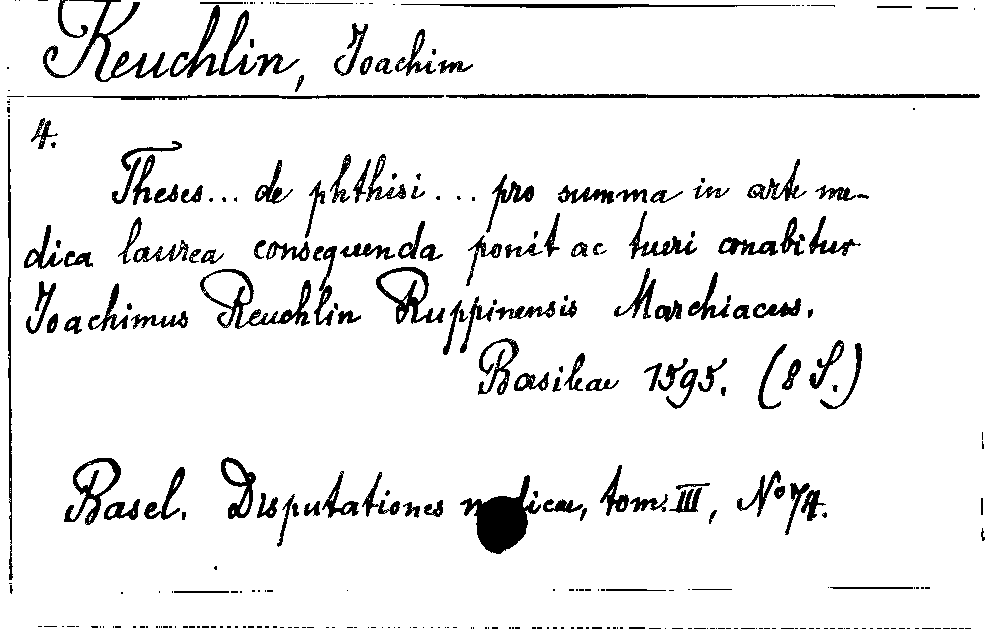 Reuchlin, Joachim
4.
Theses... de phthisi... pro summa in arte me-
dica laurea consequenda ponit ac tueri conabitur
Joachimus Reuchlin Ruppinensis Marchiacus.
Basileae 1595. (8 S.)
Basel. Disputationes medicae, tom. III, No 74.